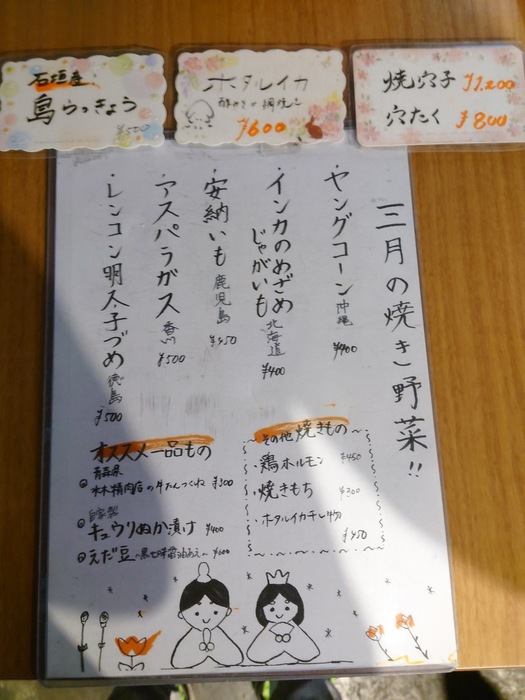 石垣産
島らっきょう
¥500
ホタルイカ
酢みそ or 網焼き
¥600
焼穴子 ¥1,200
穴たく ¥800
三月の焼き野菜!!
・ヤングコーン 沖縄 ¥400
・インカのめざめ
じゃがいも 北海道 ¥400
・安納いも 鹿児島 ¥450
・アスパラガス 香川 ¥500
・レンコン明太子づめ 徳島 ¥500
オススメ一品もの
青森県
精肉店の牛たんつくね ¥300
自家製
キュウリぬか漬け ¥400
えだ豆 〜黒七味醤油あえ〜 ¥600
その他焼きもの
・鶏ホルモン ¥450
・焼きもち ¥200
・ホタルイカ干し物
¥450